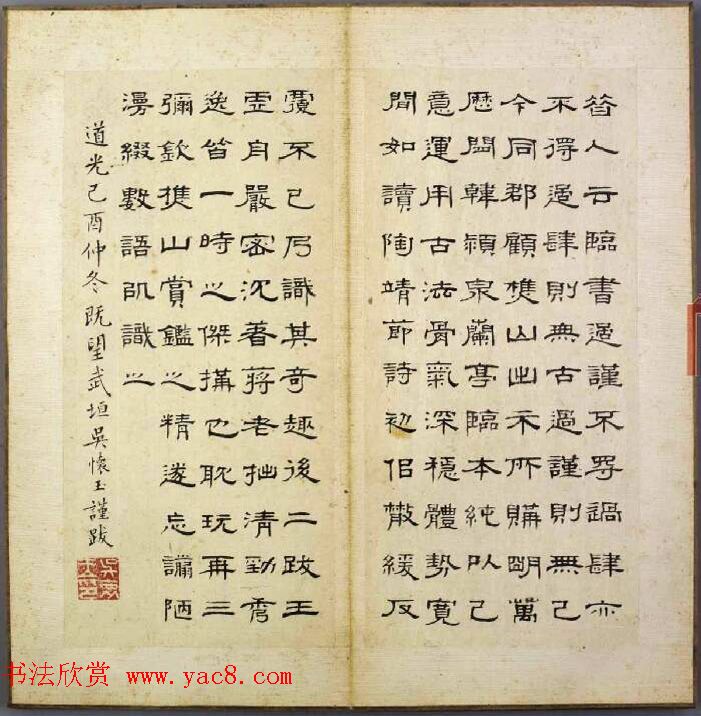 昔人云臨書過謹不㝵過肆亦
不得過肆則無古過謹則無己
今同郡顧樵山出示所購明萬
歷閒韓潁泉蘭亭臨本純以己
意運用古法骨氣深穩體勢寬
閒如讀陶靖節詩初佀散緩反
覆不已乃識其奇趣後二跋王
嚴密沈著蔣老拙清勁秀
逸皆一時之傑搆也耽玩再三
彌欽樵山賞鑑之精遂忘譾陋
漫綴數語以識之
道光己酉仲冬既望武垣吳懷玉謹跋
书法欣赏 www.yac8.com